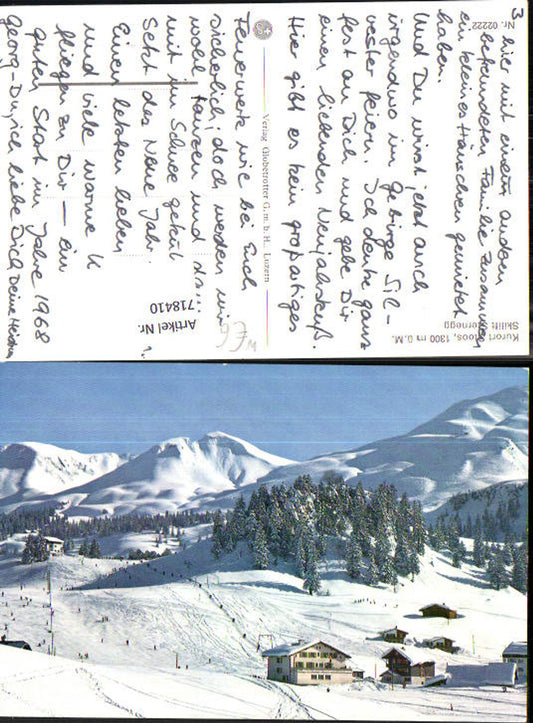 hier mit einem andern
befreundeten Familie zusammen
ein kleines Häuschen gemietet
haben.
Und Du wirst jetzt auch
irgendwo im Gebirge Sil-
vester feiern. Ich denke ganz
fest an Dich und gebe Dir
einen liebenden Neujahrskuß.
Hier gibt es kein großartiges
Feuerwerk wie bei Euch
sicherlich, doch werden wir
wohl tanzen und da...
mit im Schnee gekühl
Sekt das Neue Jahr
Einen letzten lieben
und viele warme K
fliegen zu Dir — ein
guten Start im Jahre 1968
Georg-Du, ich liebe Dich Deine
3
Nr. 02222
Verlag Globetrotter G.m.b.H., Luzern
Kurort 1300 m ü. M.
Skilift
Artikel Nr.
718410